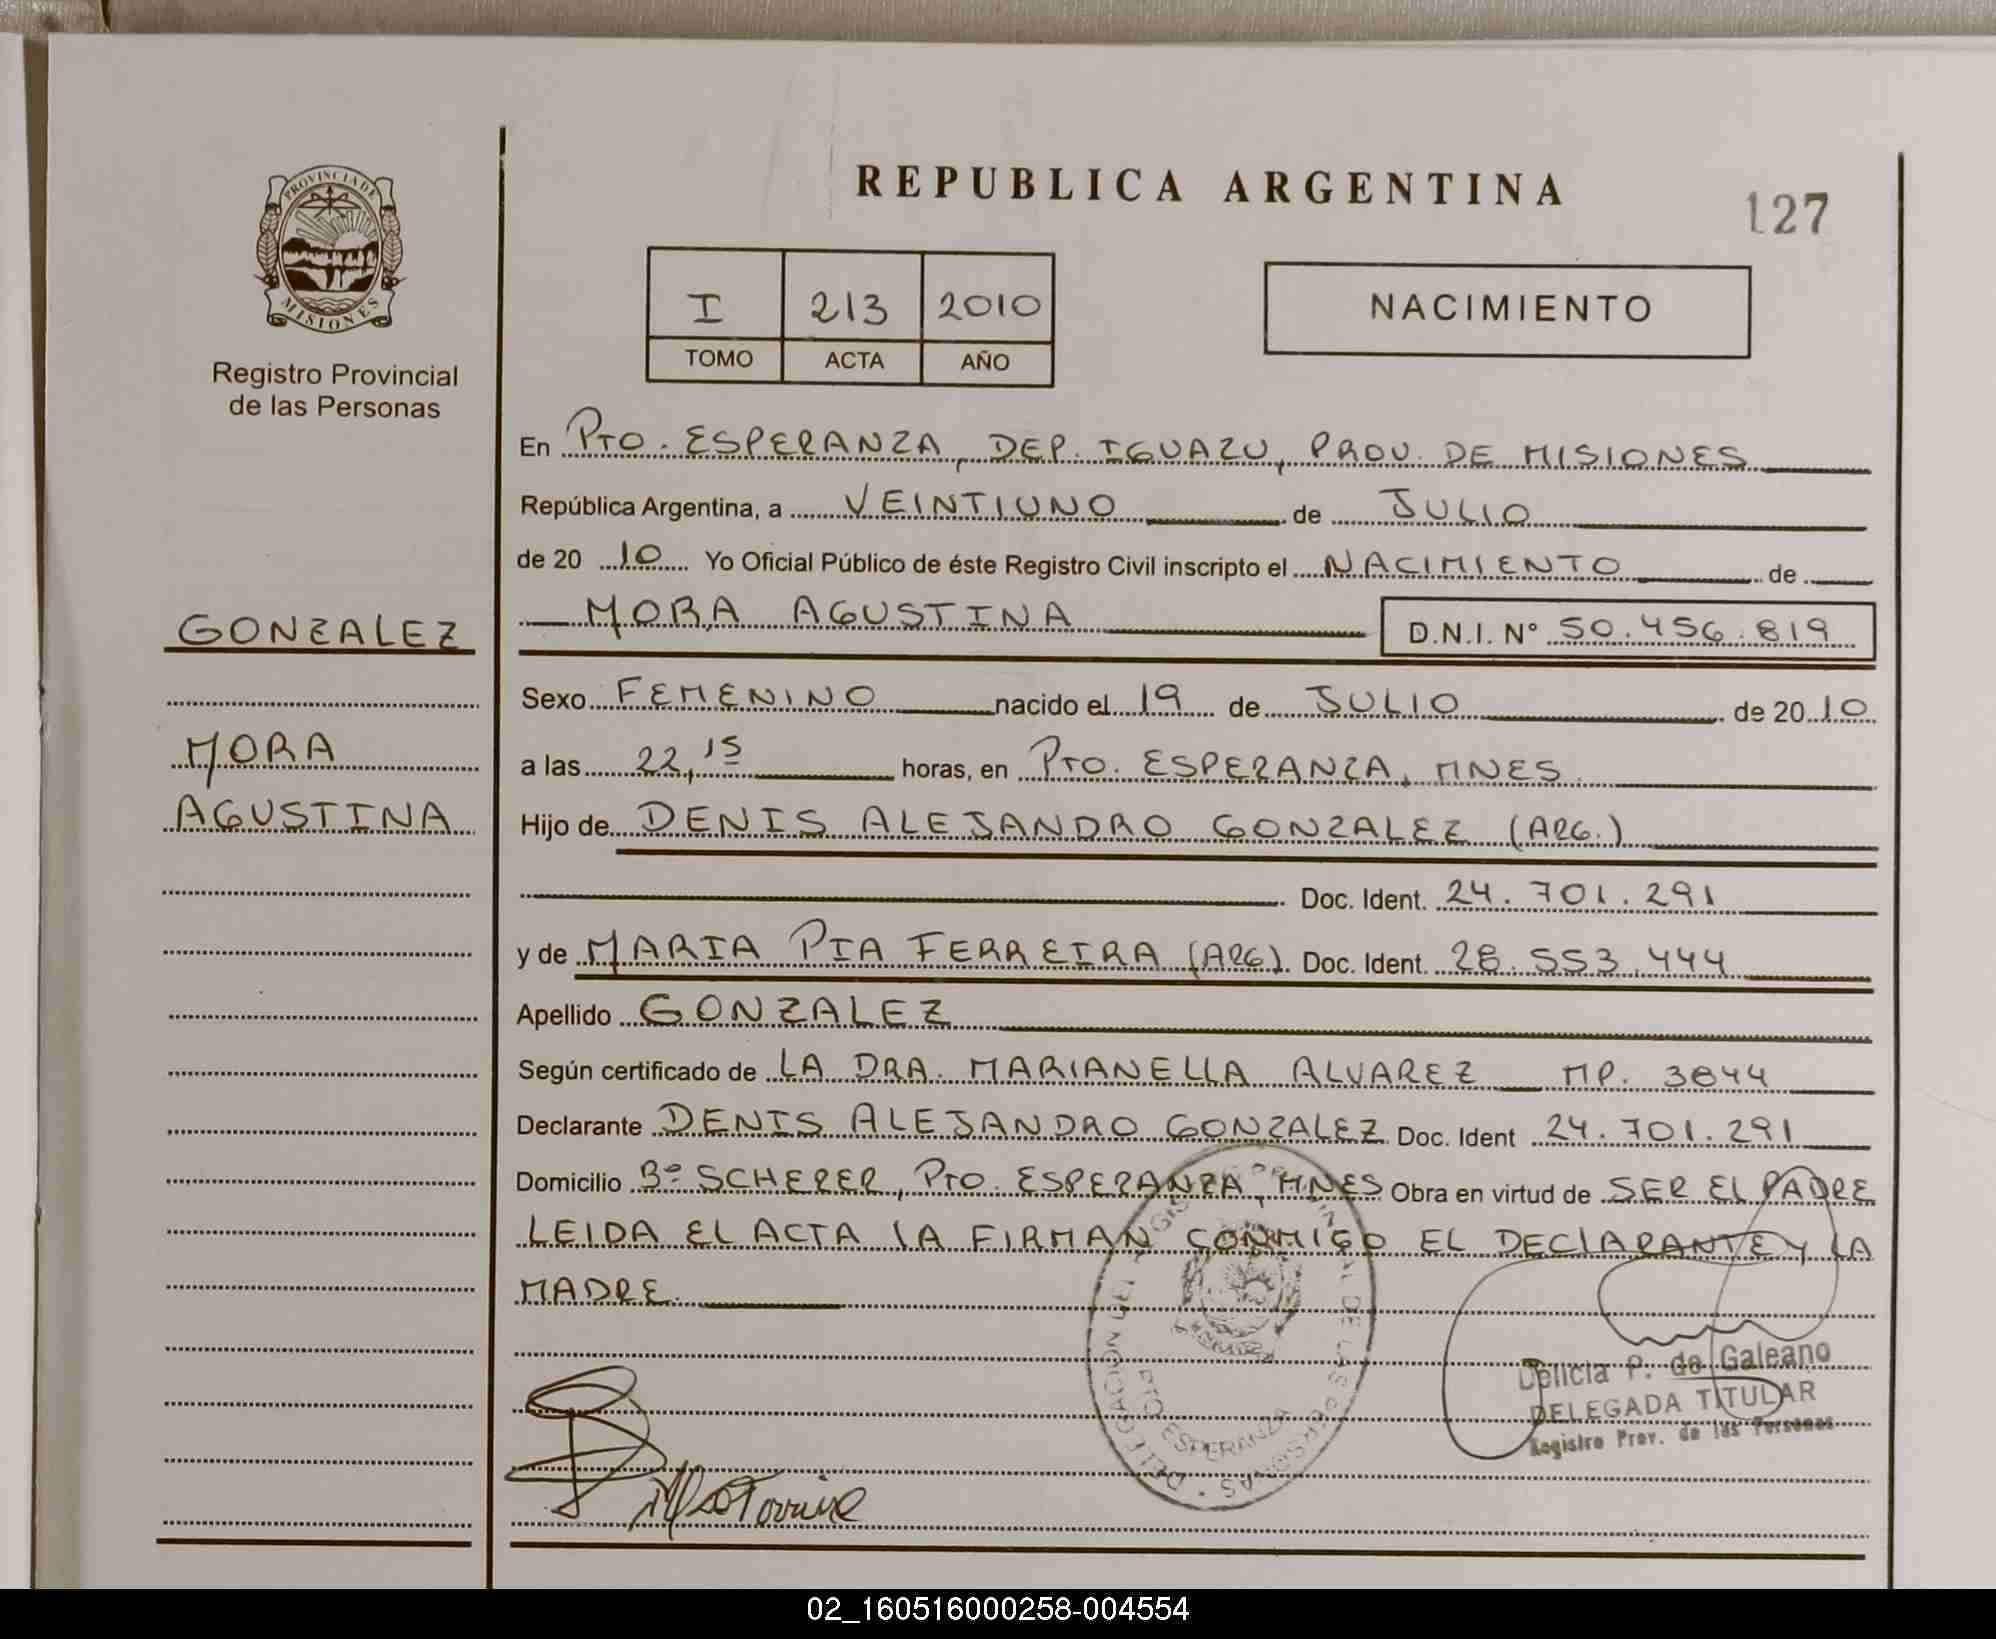 REPUBLICA ARGENTINA
127
PROVINCIA DE
MISIONES
Registro Provincial
de las Personas
I 213 2010
TOMO ACTA AÑO
NACIMIENTO
En PTO. ESPERANZA, DEP. IGUAZU, PROV. DE MISIONES
República Argentina, a VEINTIUNO de JULIO
de 20 10 Yo Oficial Público de éste Registro Civil inscripto el NACIMIENTO de
MORA AGUSTINA D.N.I. Nº 50.456.819
GONZALEZ
MORA
AGUSTINA
Sexo FEMENINO nacido el 19 de JULIO de 20 10
a las 22,15 horas, en PTO. ESPERANZA, MNES.
Hijo de DENIS ALEJANDRO GONZALEZ (ARG.)
Doc. Ident. 24.701.291
y de MARIA PIA FERREIRA (ARG). Doc. Ident. 28.553.444
Apellido GONZALEZ
Según certificado de LA DRA. MARIANELLA ALVAREZ MP. 3844
Declarante DENIS ALEJANDRO GONZALEZ Doc. Ident 24.701.291
Domicilio Bº SCHERER, PTO. ESPERANZA, MNES Obra en virtud de SER EL PADRE
LEIDA EL ACTA LA FIRMAN CONMIGO EL DECLARANTE Y LA
MADRE.
DELEGACION DEL REGISTRO PROVINCIAL DE LAS PERSONAS
PTO ESPERANZA
Delicia P. de Galeano
DELEGADA TITULAR
Registro Prov. de las Personas
02_160516000258-004554